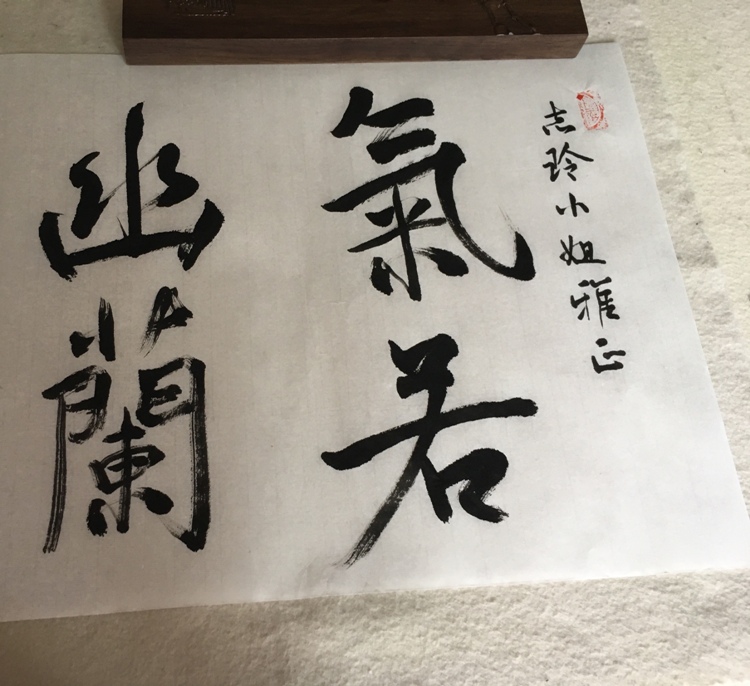 志玲小姐雅正
氣若
幽蘭